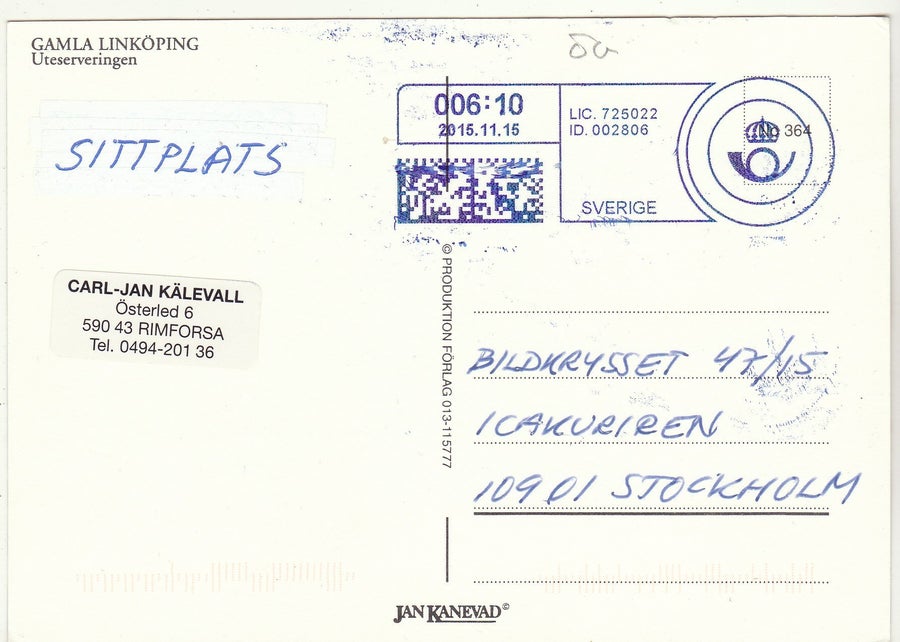 GAMLA LINKÖPING
Uteserveringen
SITTPLATS
006:10
2015.11.15
LIC. 725022
ID. 002806
SVERIGE
No 364
CARL-JAN KÄLEVALL
Österled 6
590 43 RIMFORSA
Tel. 0494-201 36
© PRODUKTION FÖRLAG 013-115777
BILDKRYSSET 47/15
ICAKURIREN
109 01 STOCKHOLM
JAN KANEVAD©